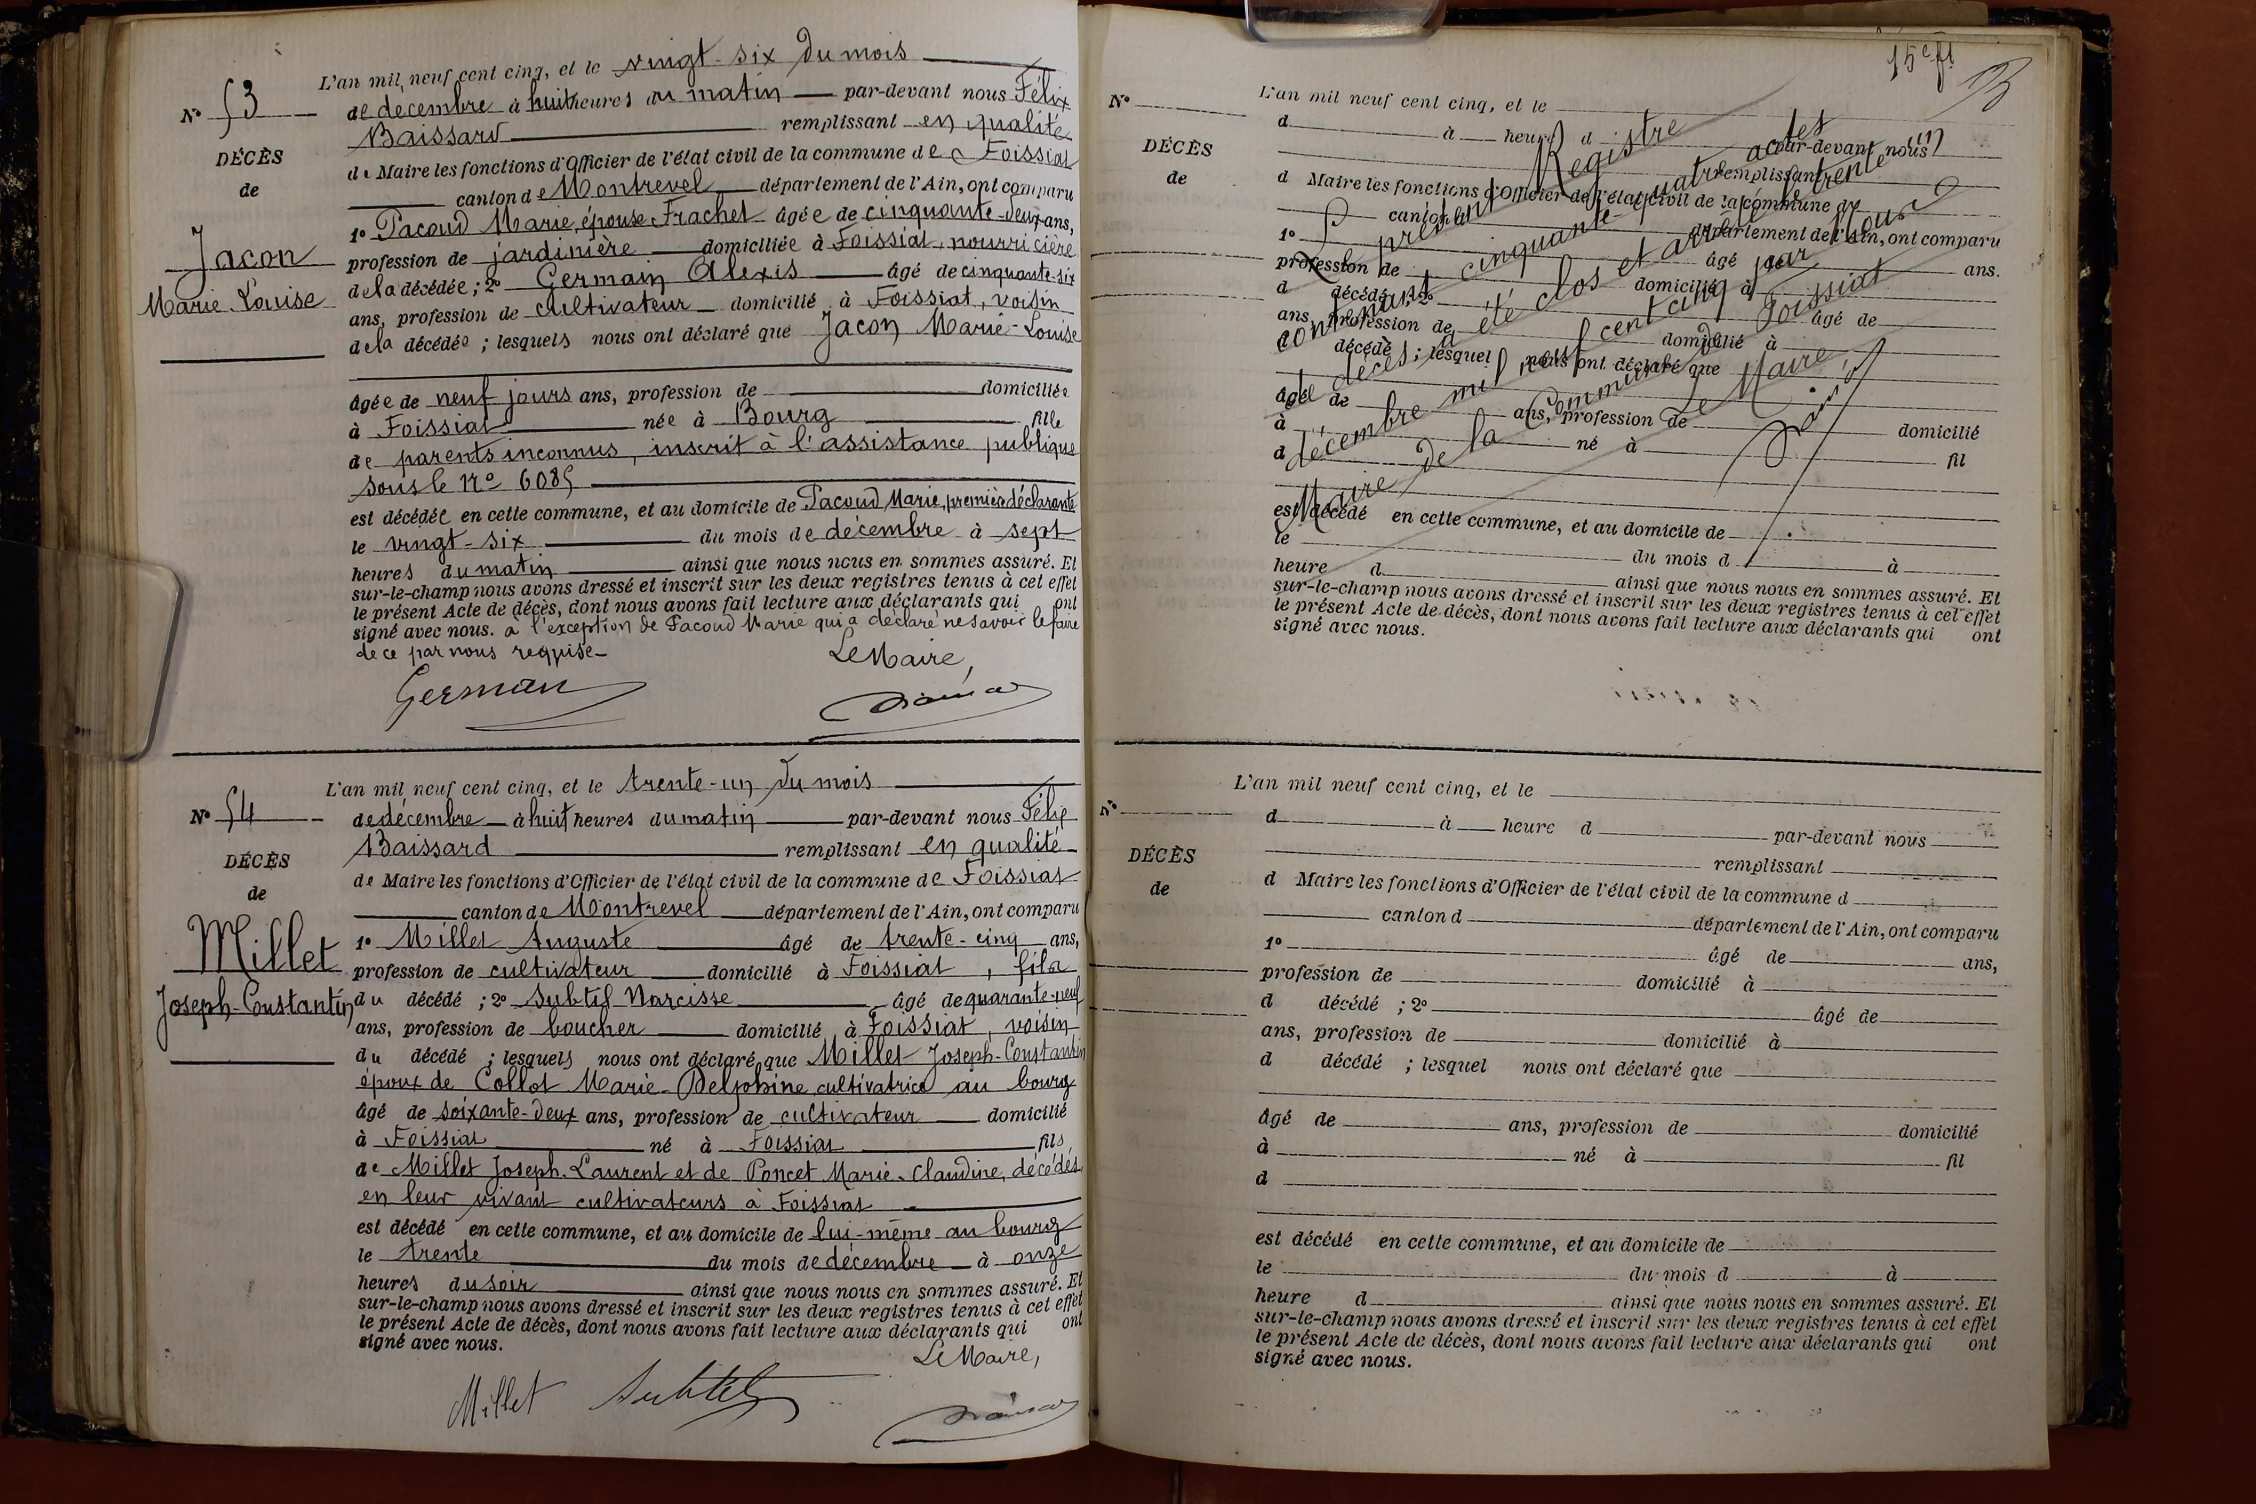 L'an mil neuf cent cinq, et le vingt-six du mois
N° 53
de décembre à huit heures du matin par-devant nous Félix
Baissard remplissant en qualité
DÉCÈS
de Maire les fonctions d'Officier de l'état civil de la commune de Foissiat
de
canton de Montrevel département de l'Ain, ont comparu
1° Pacoud Marie, épouse Frachet âgée de cinquante-deux ans,
Jacon
profession de jardinière domiciliée à Foissiat, nourricière
Marie-Louise
de la décédée ; 2° Germain Alexis âgé de cinquante-six
ans, profession de cultivateur domicilié à Foissiat, voisin
de la décédée ; lesquels nous ont déclaré que Jacon Marie-Louise
âgée de neuf jours ans, profession de domiciliée
à Foissiat née à Bourg fille
de parents inconnus, inscrit à l'assistance publique
sous le N° 6085
est décédée en cette commune, et au domicile de Pacoud Marie, première déclarante
le vingt-six du mois de décembre à sept
heures du matin ainsi que nous nous en sommes assuré. Et
sur-le-champ nous avons dressé et inscrit sur les deux registres tenus à cet effet
le présent Acte de décès, dont nous avons fait lecture aux déclarants qui ont
signé avec nous. à l'exception de Pacoud Marie qui a déclaré ne savoir le faire
de ce par nous requise
Le Maire,
German
L'an mil neuf cent cinq, et le trente-un du mois
N° 54
de décembre à huit heures du matin par-devant nous Félix
Baissard remplissant en qualité
DÉCÈS
de Maire les fonctions d'Officier de l'état civil de la commune de Foissiat
de
canton de Montrevel département de l'Ain, ont comparu
Millet
1° Millet Auguste âgé de trente-cinq ans,
profession de cultivateur domicilié à Foissiat, fils
Joseph-Constantin
du décédé ; 2° Subtil Narcisse âgé de quarante-neuf
ans, profession de boucher domicilié à Foissiat, voisin
du décédé ; lesquels nous ont déclaré que Millet Joseph-Constantin
époux de Collot Marie-Delphine cultivatrice au bourg
âgé de soixante-deux ans, profession de cultivateur domicilié
à Foissiat né à Foissiat fils
de Millet Joseph-Laurent et de Poncet Marie-Claudine, décédés
en leur vivant cultivateurs à Foissiat
est décédé en cette commune, et au domicile de lui-même au bourg
le trente du mois de décembre à onze
heures du soir ainsi que nous nous en sommes assuré. Et
sur-le-champ nous avons dressé et inscrit sur les deux registres tenus à cet effet
le présent Acte de décès, dont nous avons fait lecture aux déclarants qui ont
signé avec nous.
Le Maire,
Millet Subtil
15e ft
L'an mil neuf cent cinq, et le
N°
d à heure d
par-devant nous
DÉCÈS
remplissant
de
d Maire les fonctions d'Officier de l'état civil de la commune d
canton d département de l'Ain, ont comparu
1° âgé de ans.
profession de domicilié à
d décédé ; 2° âgé de
ans, profession de domicilié à
d décédé ; lesquel nous ont déclaré que
âgé de ans, profession de domicilié
à né à fil
d
est décédé en cette commune, et au domicile de
le du mois d à
heure d ainsi que nous nous en sommes assuré. Et
sur-le-champ nous avons dressé et inscrit sur les deux registres tenus à cet effet
le présent Acte de décès, dont nous avons fait lecture aux déclarants qui ont
signé avec nous.
Le présent Registre
contenant cinquante-quatre actes
de décès, a été clos et arrêté le trente un
décembre mil neuf cent cinq par Nous
Maire de la Commune de Foissiat
Le Maire
L'an mil neuf cent cinq, et le
N°
d à heure d par-devant nous
DÉCÈS
remplissant
de
d Maire les fonctions d'Officier de l'état civil de la commune d
canton d département de l'Ain, ont comparu
1° âgé de ans,
profession de domicilié à
d décédé ; 2° âgé de
ans, profession de domicilié à
d décédé ; lesquel nous ont déclaré que
âgé de ans, profession de domicilié
à né à fil
d
est décédé en cette commune, et au domicile de
le du mois d à
heure d ainsi que nous nous en sommes assuré. Et
sur-le-champ nous avons dressé et inscrit sur les deux registres tenus à cet effet
le présent Acte de décès, dont nous avons fait lecture aux déclarants qui ont
signé avec nous.